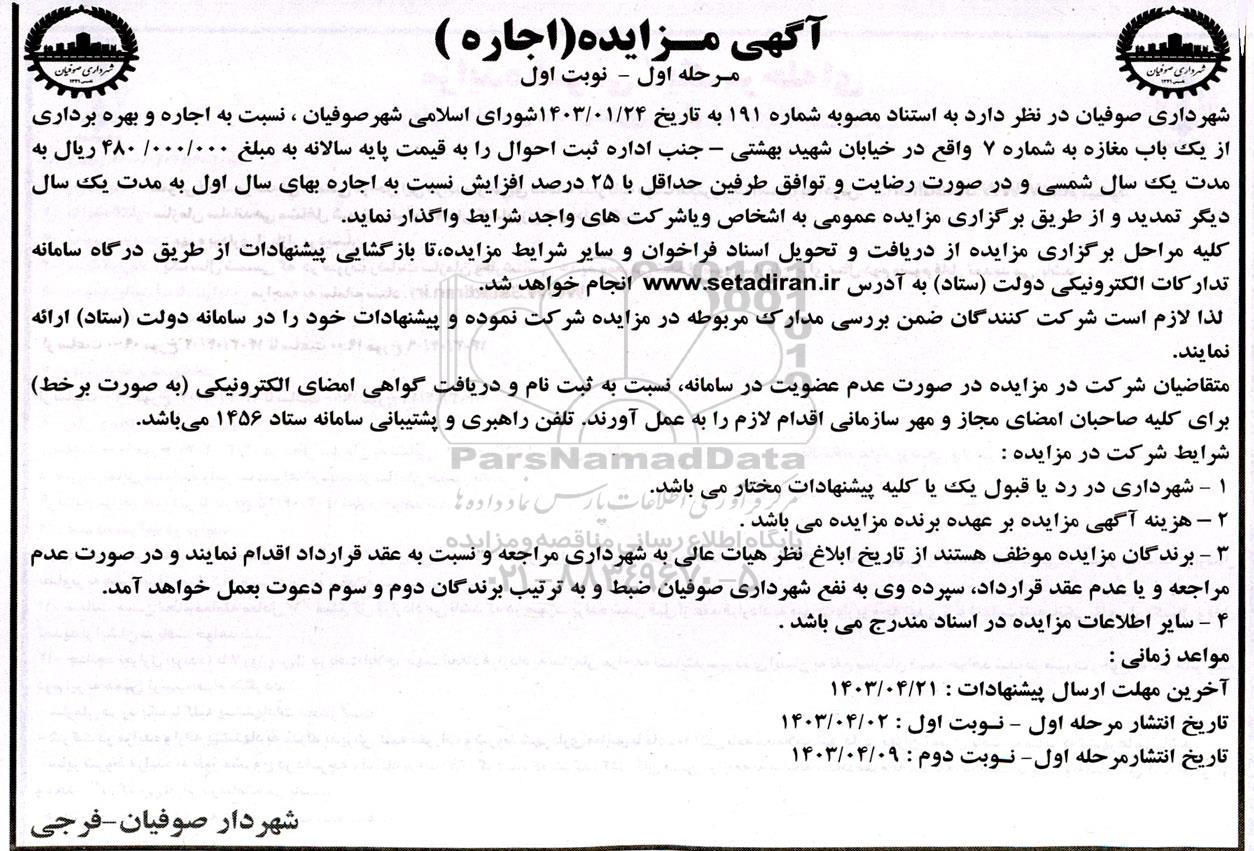 آگهی مـزایده(اجاره )
مـرحله اول - نوبت اول
شهرداری صوفیان
شهرداری صوفیان
شهرداری صوفیان در نظر دارد به استناد مصوبه شماره ۱۹۱ به تاریخ ۱۴۰۳/۰۱/۲۴شورای اسلامی شهرصوفیان ، نسبت به اجاره و بهره برداری
از یک باب مغازه به شماره ۷ واقع در خیابان شهید بهشتی – جنب اداره ثبت احوال را به قیمت پایه سالانه به مبلغ ۴۸۰/۰۰۰/۰۰۰ ریال به
مدت یک سال شمسی و در صورت رضایت و توافق طرفین حداقل با ۲۵ درصد افزایش نسبت به اجاره بهای سال اول به مدت یک سال
دیگر تمدید و از طریق برگزاری مزایده عمومی به اشخاص ویاشرکت های واجد شرایط واگذار نماید.
کلیه مراحل برگزاری مزایده از دریافت و تحویل اسناد فراخوان و سایر شرایط مزایده،تا بازگشایی پیشنهادات از طریق درگاه سامانه
تدارکات الکترونیکی دولت (ستاد) به آدرس www.setadiran.ir انجام خواهد شد.
لذا لازم است شرکت کنندگان ضمن بررسی مدارک مربوطه در مزایده شرکت نموده و پیشنهادات خود را در سامانه دولت (ستاد) ارائه
نمایند.
متقاضیان شرکت در مزایده در صورت عدم عضویت در سامانه، نسبت به ثبت نام و دریافت گواهی امضای الکترونیکی (به صورت برخط)
برای کلیه صاحبان امضای مجاز و مهر سازمانی اقدام لازم را به عمل آورند. تلفن راهبری و پشتیبانی سامانه ستاد ۱۴۵۶ می‌باشد.
ParsNamadData
شرایط شرکت در مزایده :
۱ - شهرداری در رد یا قبول یک یا کلیه پیشنهادات مختار می باشد.
مرکز فرآوری اطلاعات پارس نماد داده ها
۲ – هزینه آگهی مزایده بر عهده برنده مزایده می باشد .
پایگاه اطلاع رسانی مناقصه و مزایده
۳ - برندگان مزایده موظف هستند از تاریخ ابلاغ نظر هیات عالی به شهرداری مراجعه و نسبت به عقد قرارداد اقدام نمایند و در صورت عدم
۰۲۱-۸۸۳۴۹۶۷۰-۵
مراجعه و یا عدم عقد قرارداد، سپرده وی به نفع شهرداری صوفیان ضبط و به ترتیب برندگان دوم و سوم دعوت بعمل خواهد آمد.
۴ - سایر اطلاعات مزایده در اسناد مندرج می باشد .
مواعد زمانی :
آخرین مهلت ارسال پیشنهادات : ۱۴۰۳/۰۴/۲۱
تاریخ انتشار مرحله اول - نـوبت اول : ۱۴۰۳/۰۴/۰۲
تاریخ انتشارمرحله اول- نـوبت دوم : ۱۴۰۳/۰۴/۰۹
شهردار صوفیان-فرجی